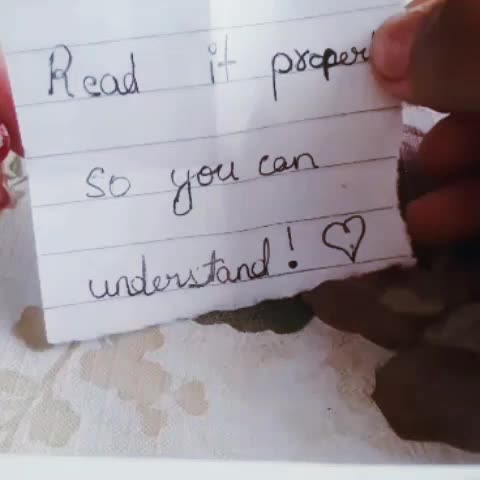 Read it proper
so you can
understand! ♡